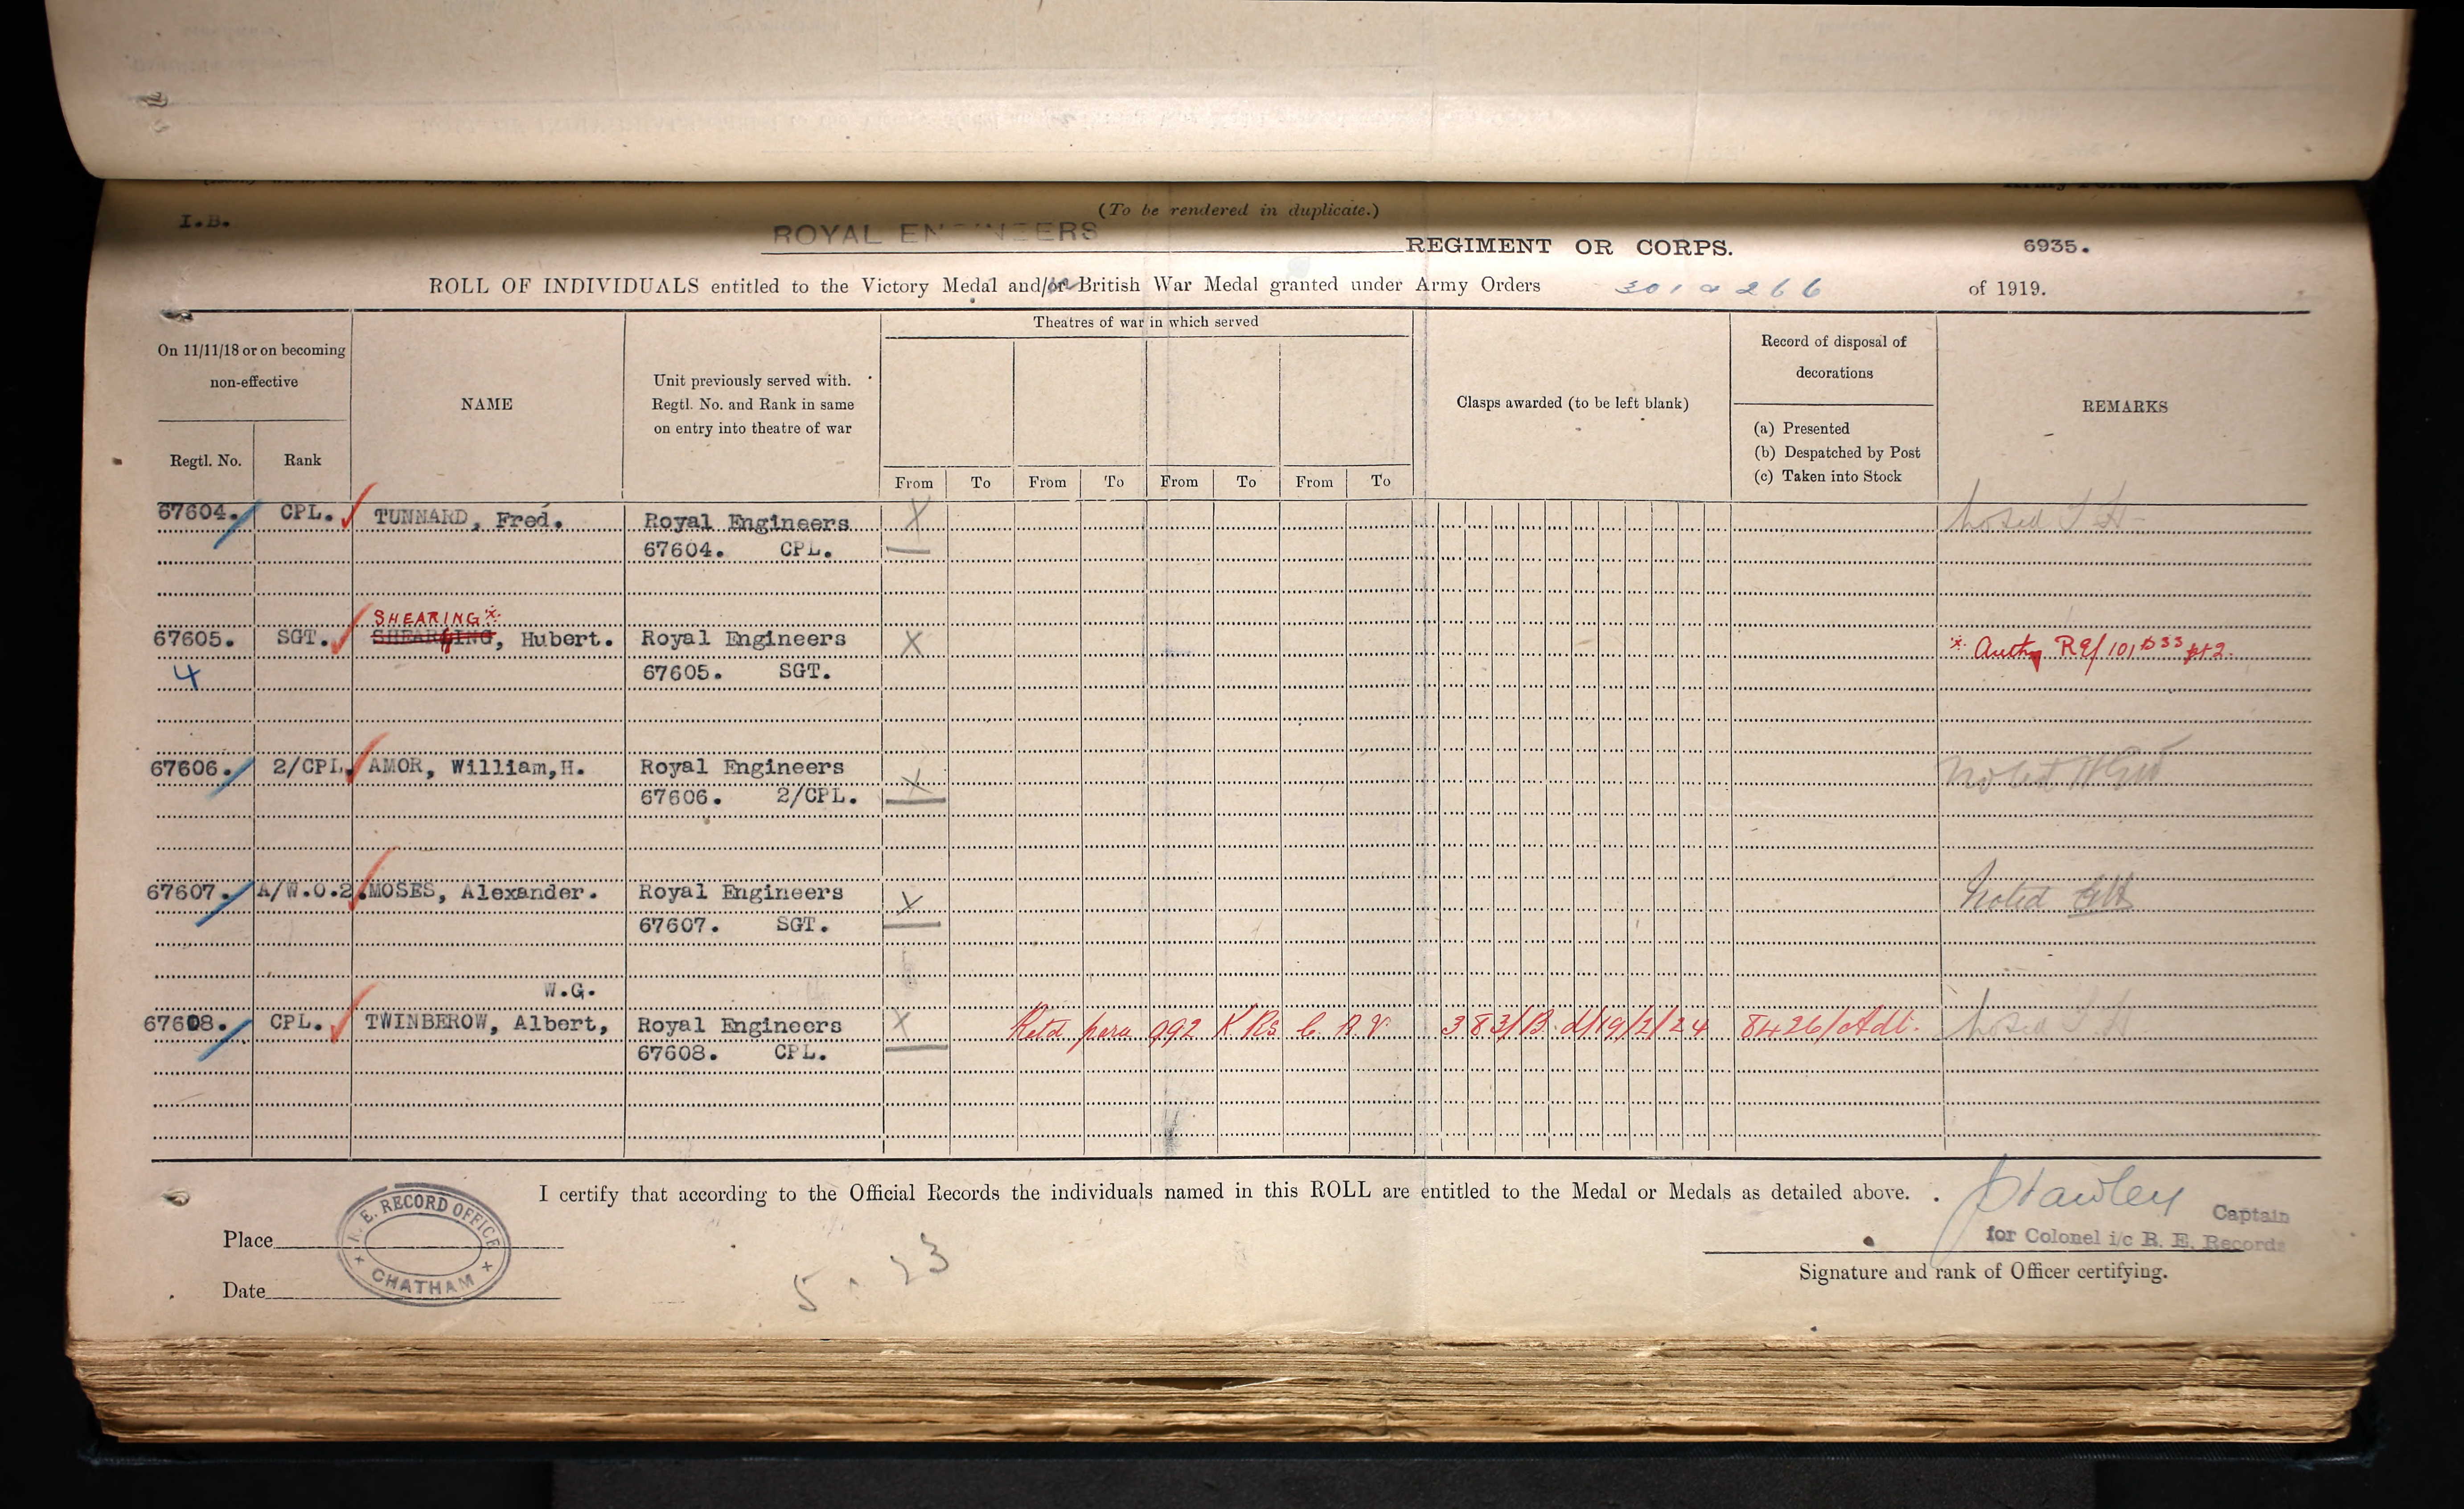 I.B.
(To be rendered in duplicate.)
ROYAL ENGINEERS REGIMENT OR CORPS. 6935.
ROLL OF INDIVIDUALS entitled to the Victory Medal and/or British War Medal granted under Army Orders 301 & 266 of 1919.
On 11/11/18 or on becoming non-effective
Regtl. No.
Rank
NAME
Unit previously served with.
Regtl. No. and Rank in same
on entry into theatre of war
Theatres of war in which served
From To From To From To From To
Clasps awarded (to be left blank)
Record of disposal of
decorations
(a) Presented
(b) Despatched by Post
(c) Taken into Stock
REMARKS
67604. CPL. TUNNARD, Fred. Royal Engineers X Noted
67604. CPL.
SHEARING*
67605. SGT. SHEARLING, Hubert. Royal Engineers X * Authy
4 67605. SGT.
67606. 2/CPL. AMOR, William,H. Royal Engineers X Noted
67606. 2/CPL.
67607. A/W.O.2. MOSES, Alexander. Royal Engineers X Noted
67607. SGT.
W.G.
67608. CPL. TWINBEROW, Albert, Royal Engineers X Retd para 992 K Rs 383/B. d/19/2/24 8426/Adt. Noted
67608. CPL.
I certify that according to the Official Records the individuals named in this ROLL are entitled to the Medal or Medals as detailed above.
Place
R. E. RECORD OFFICE
CHATHAM
Date
5 . 23
Captain
for Colonel i/c R. E. Records
Signature and rank of Officer certifying.